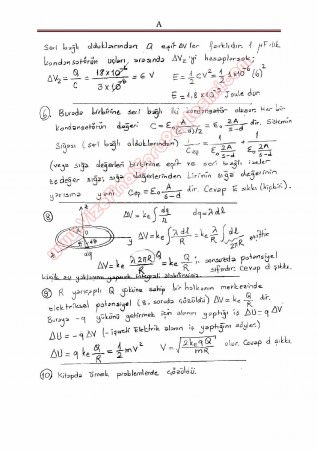 A
seri bağlı olduklarından Q eşit ΔV ler farklıdır. 1 μF lık
kondansatörün uçları arasında ΔV₂ 'yi hesaplarsak;
ΔV₂ = Q/C = 18x10⁻⁶ / 3x10⁻⁶ = 6 V E = 1/2 CV² = 1/2 1x10⁻⁶ (6)²
E = 1.8 x10⁻⁵ Joule dur
⑥ Burada birbirine seri bağlı iki kondansatör oluşur. Her bir
kondansatörün değeri C = ε₀ A/(s-d)/2 = ε₀ 2A/s-d dir. Sistemin
Sığası (seri bağlı olduklarından) 1/Ceş = 1/ε₀ 2A/s-d + 1/ε₀ 2A/s-d
(veya sığa değerleri birbirine eşit ve seri bağlı ise
eşdeğer sığa; sığa değerlerinden birinin sığa değerinin
yarısına yani Ceş = ε₀ A/s-d dir. Cevap E şıkkı (hiçbiri).
⑧ ΔV = ke ∫ dq/r dq = λdl
ΔV = ke ∫ λdl/R = ke λ/R ∫ dl
ΔV = ke λ2πR/R = ke Q/R ; sonsuzda potansiyel
sıfırdır; Cevap d şıkkı.
⑨ R yarıçaplı Q yüküne sahip bir halkanın merkezinde
elektriksel potansiyel (8. soruda çözüldü) ΔV = ke Q/R dir.
Buraya -q yükünü getirmek için alanın yaptığı iş ΔU = q ΔV
ΔU = -q ΔV (- işareti elektrik alanın iş yaptığını söyler)
ΔU = q ke Q/R = 1/2 mV² V = √2keqQ/mR olur. Cevap d şıkkı.
⑩ Kitapda örnek problemlerde çözüldü.